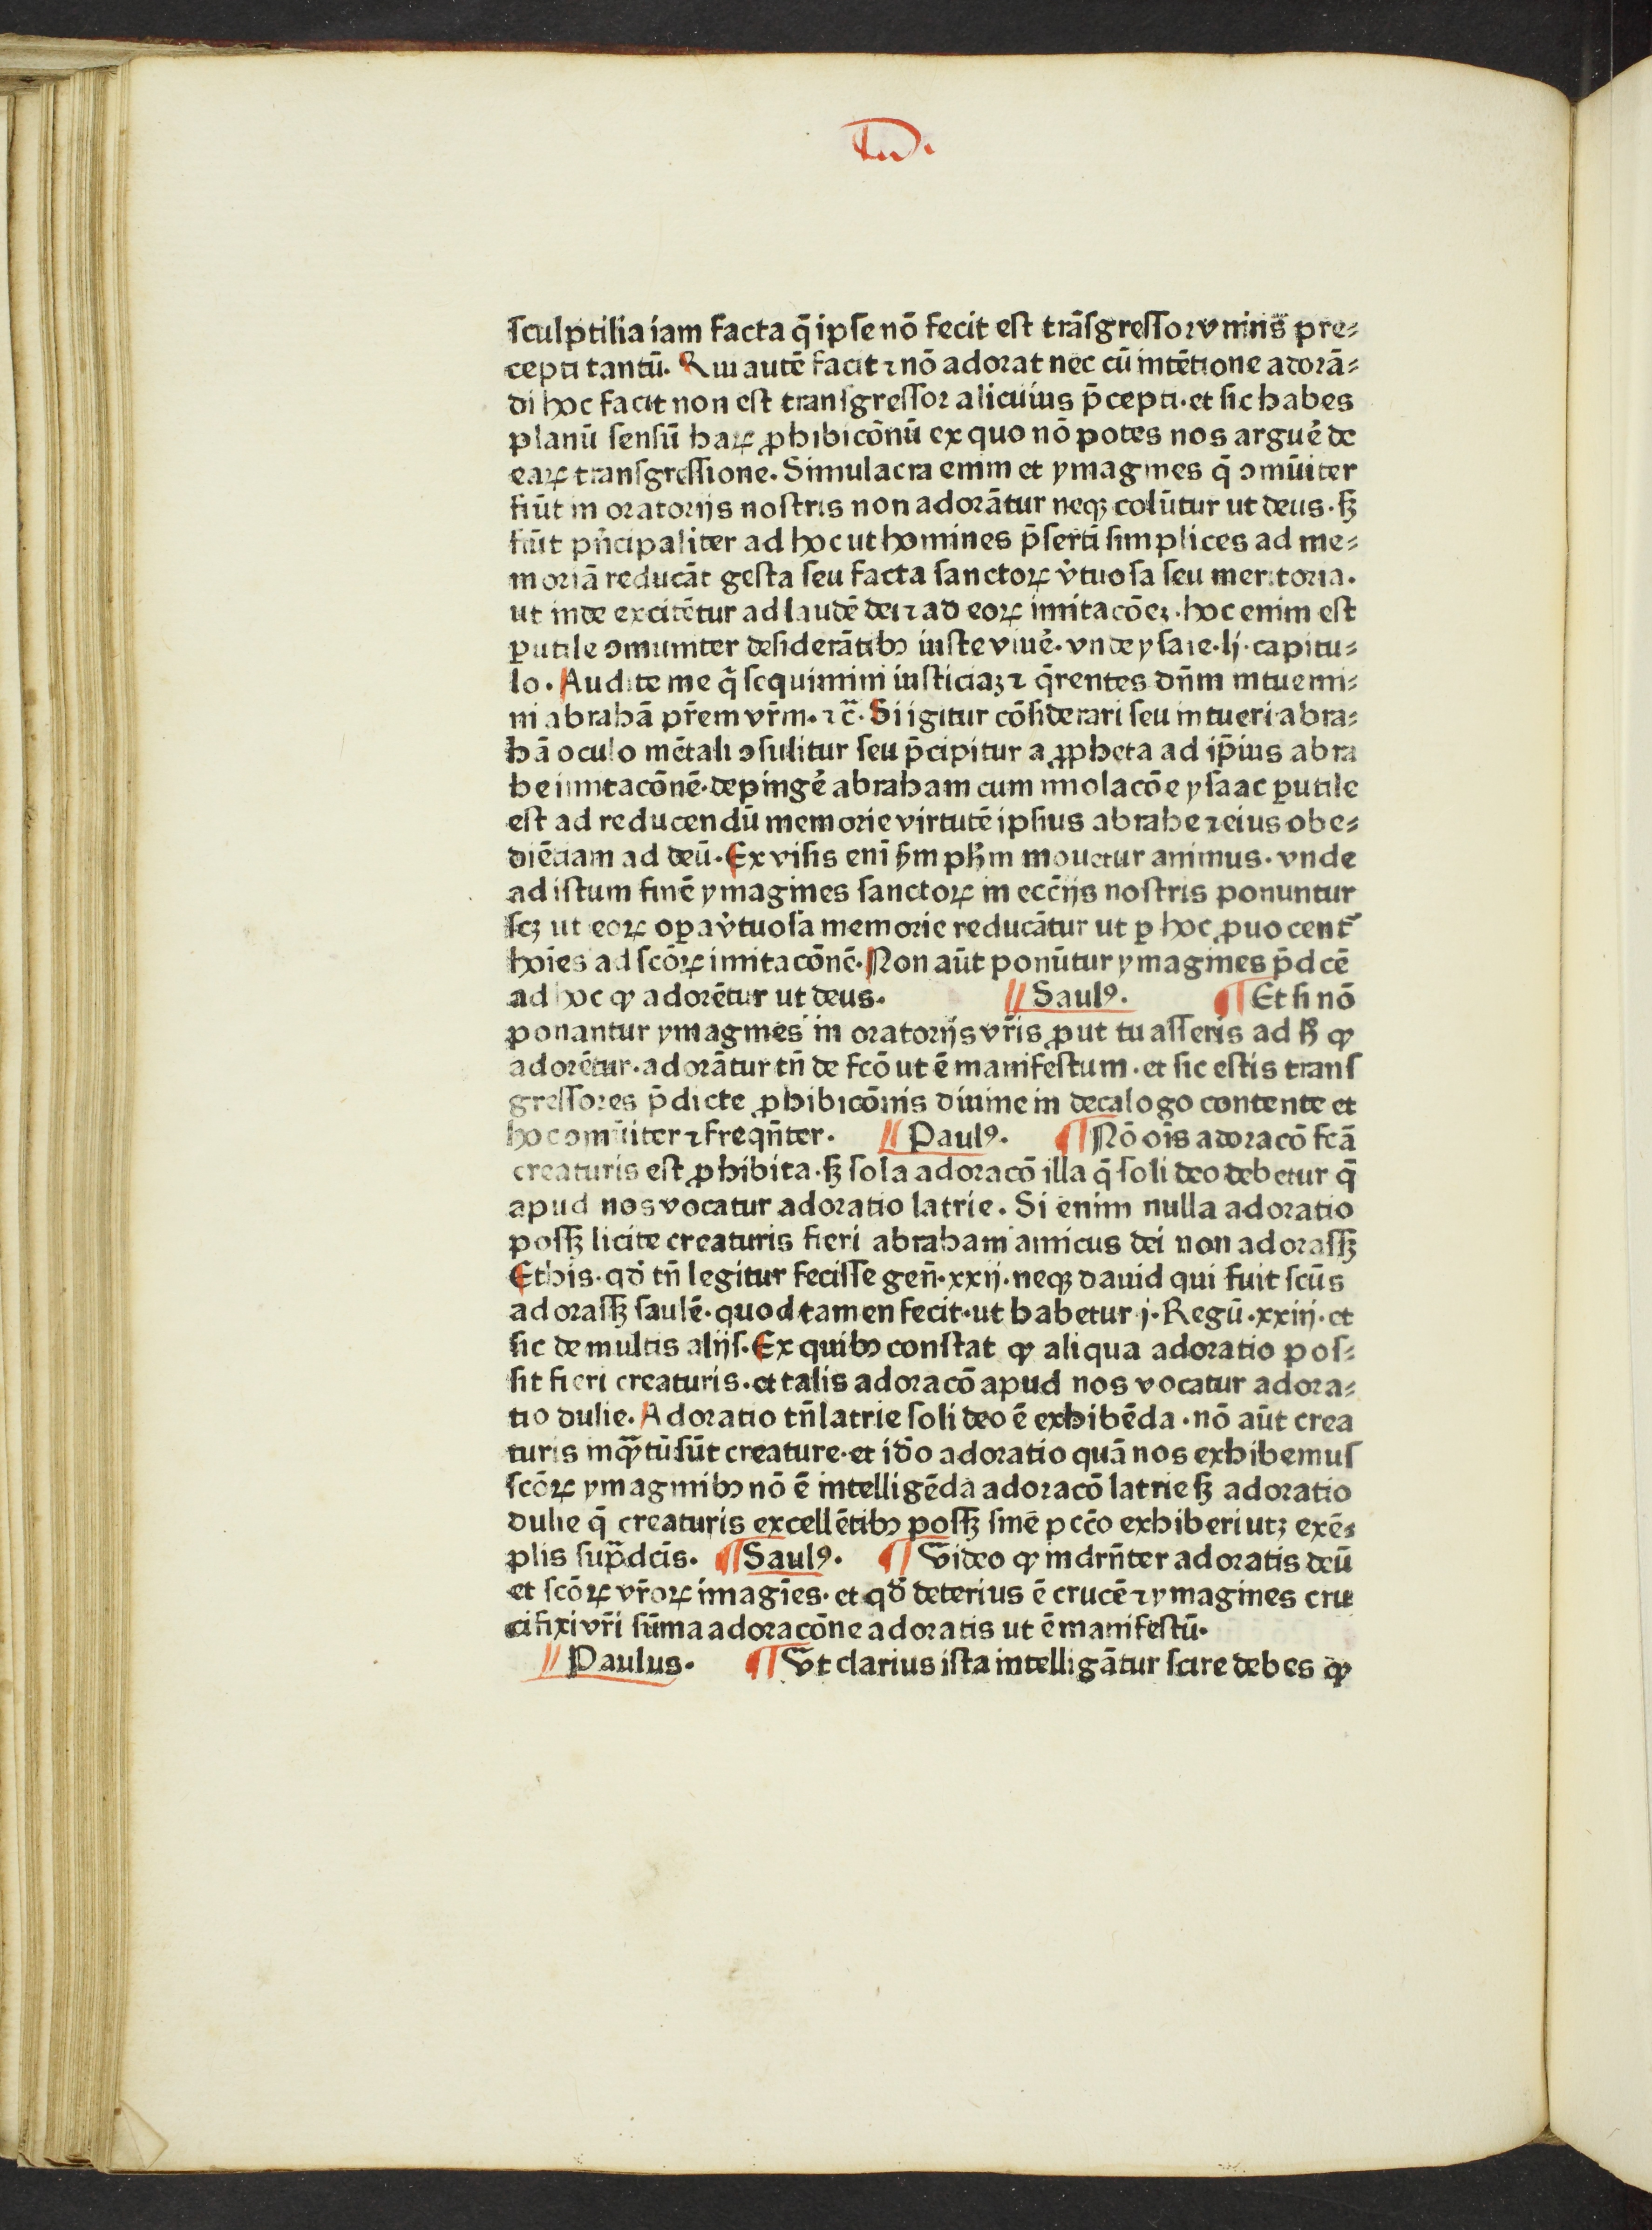 sculptilia iam facta q̄ ipse nō fecit est trāsgressor vniꝰ pre⸗
cepti tantū. Qui autē facit ⁊ nō adorat nec cū intētione adorā⸗
di hoc facit non est transgressor alicuius p̄cepti. et sic habes
planū sensū haꝝ ꝓhibicōnū ex quo nō potes nos arguē de
eaꝝ transgressione. Simulacra enim et ymagines q̄ ɔmūiter
fiūt in oratorijs nostris non adorātur neqꝫ colūtur ut deus. sꝫ
fiūt pñcipaliter ad hoc ut homines p̄sertī simplices ad me⸗
moriā reducāt gesta seu facta sanctoꝝ v̓tuosa seu meritoria.
ut inde excitētur ad laudē dei ⁊ ad eoꝝ imitacōeꝫ. hoc enim est
ꝑutile ɔmuniter desiderātibꝫ iuste viuē. vnde ysaie. lj. capitu⸗
lo. Audite me q̄ sequimini iusticiaꝫ ⁊ q̄rentes dn̄m intuemi⸗
ni abrahā pr̄em vr̄m. ⁊ c̄. Si igitur cōsiderari seu intueri abra⸗
hā oculo mētali ɔsulitur seu p̄cipitur a ꝓpheta ad ip̄ius abra
he imitacōnē. depingē abraham cum imolacōe ysaac ꝑutile
est ad reducendū memorie virtutē ipsius abrahe ⁊ eius obe⸗
diētiam ad deū. Ex visis enī ẜm pħm mouetur animus. vnde
ad istum finē ymagines sanctoꝝ in eccijs nostris ponuntur
scꝫ ut eoꝝ oꝑa v̓tuosa memorie reducātur ut ꝑ hoc ꝓuocent̄
hoīes ad scōꝝ imitacōnē. Non aūt ponūtur ymagines p̄dcē
ad hoc ꝙ adorētur ut deus. // Saulꝰ. ¶ Et si nō
ponantur ymagines in oratorijs vr̄is ꝓut tu asseris ad ħ ꝙ
adorētur. adorātur tn̄ de fcō ut ē manifestum. et sic estis trans
gressores p̄dicte ꝓhibicōnis diuine in decalogo contente et
hoc ɔmūiter ⁊ freqn̄ter. // Paulꝰ. ¶ Nō oīs adoracō fcā
creaturis est ꝓhibita. sꝫ sola adoracō illa q̄ soli deo debetur q̄
apud nos vocatur adoratio latrie. Si enim nulla adoratio
possꝫ licite creaturis fieri abraham amicus dei non adorassꝫ
Ethis. qd̓ tn̄ legitur fecisse gen̄. xxij. neqꝫ dauid qui fuit scūs
adorassꝫ saulē. quod tamen fecit. ut habetur j. Regū. xxiij. et
sic de multis alijs. Ex quibꝫ constat ꝙ aliqua adoratio pos⸗
sit fieri creaturis. et talis adoracō apud nos vocatur adora⸗
tio dulie. Adoratio tn̄ latrie soli deo ē exhibēda. nō aūt crea
turis inqᷓtū sūt creature. et iđo adoratio quā nos exhibemus
scōꝝ ymaginibꝫ nō ē intelligēda adoracō latrie sꝫ adoratio
dulie q̄ creaturis excellētibꝫ possꝫ sinē pccō exhiberi utꝫ exē⸗
plis sup̄dcīs. ¶ Saulꝰ. ¶ Video ꝙ indrn̄ter adoratis deū
et scōꝝ vr̄oꝝ imagīes. et qd̓ deterius ē crucē ⁊ ymagines cru
cifixi vr̄i sūma adoracōne adoratis ut ē manifestū.
// Paulus. ¶ Vt clarius ista intelligātur scire debes ꝙ